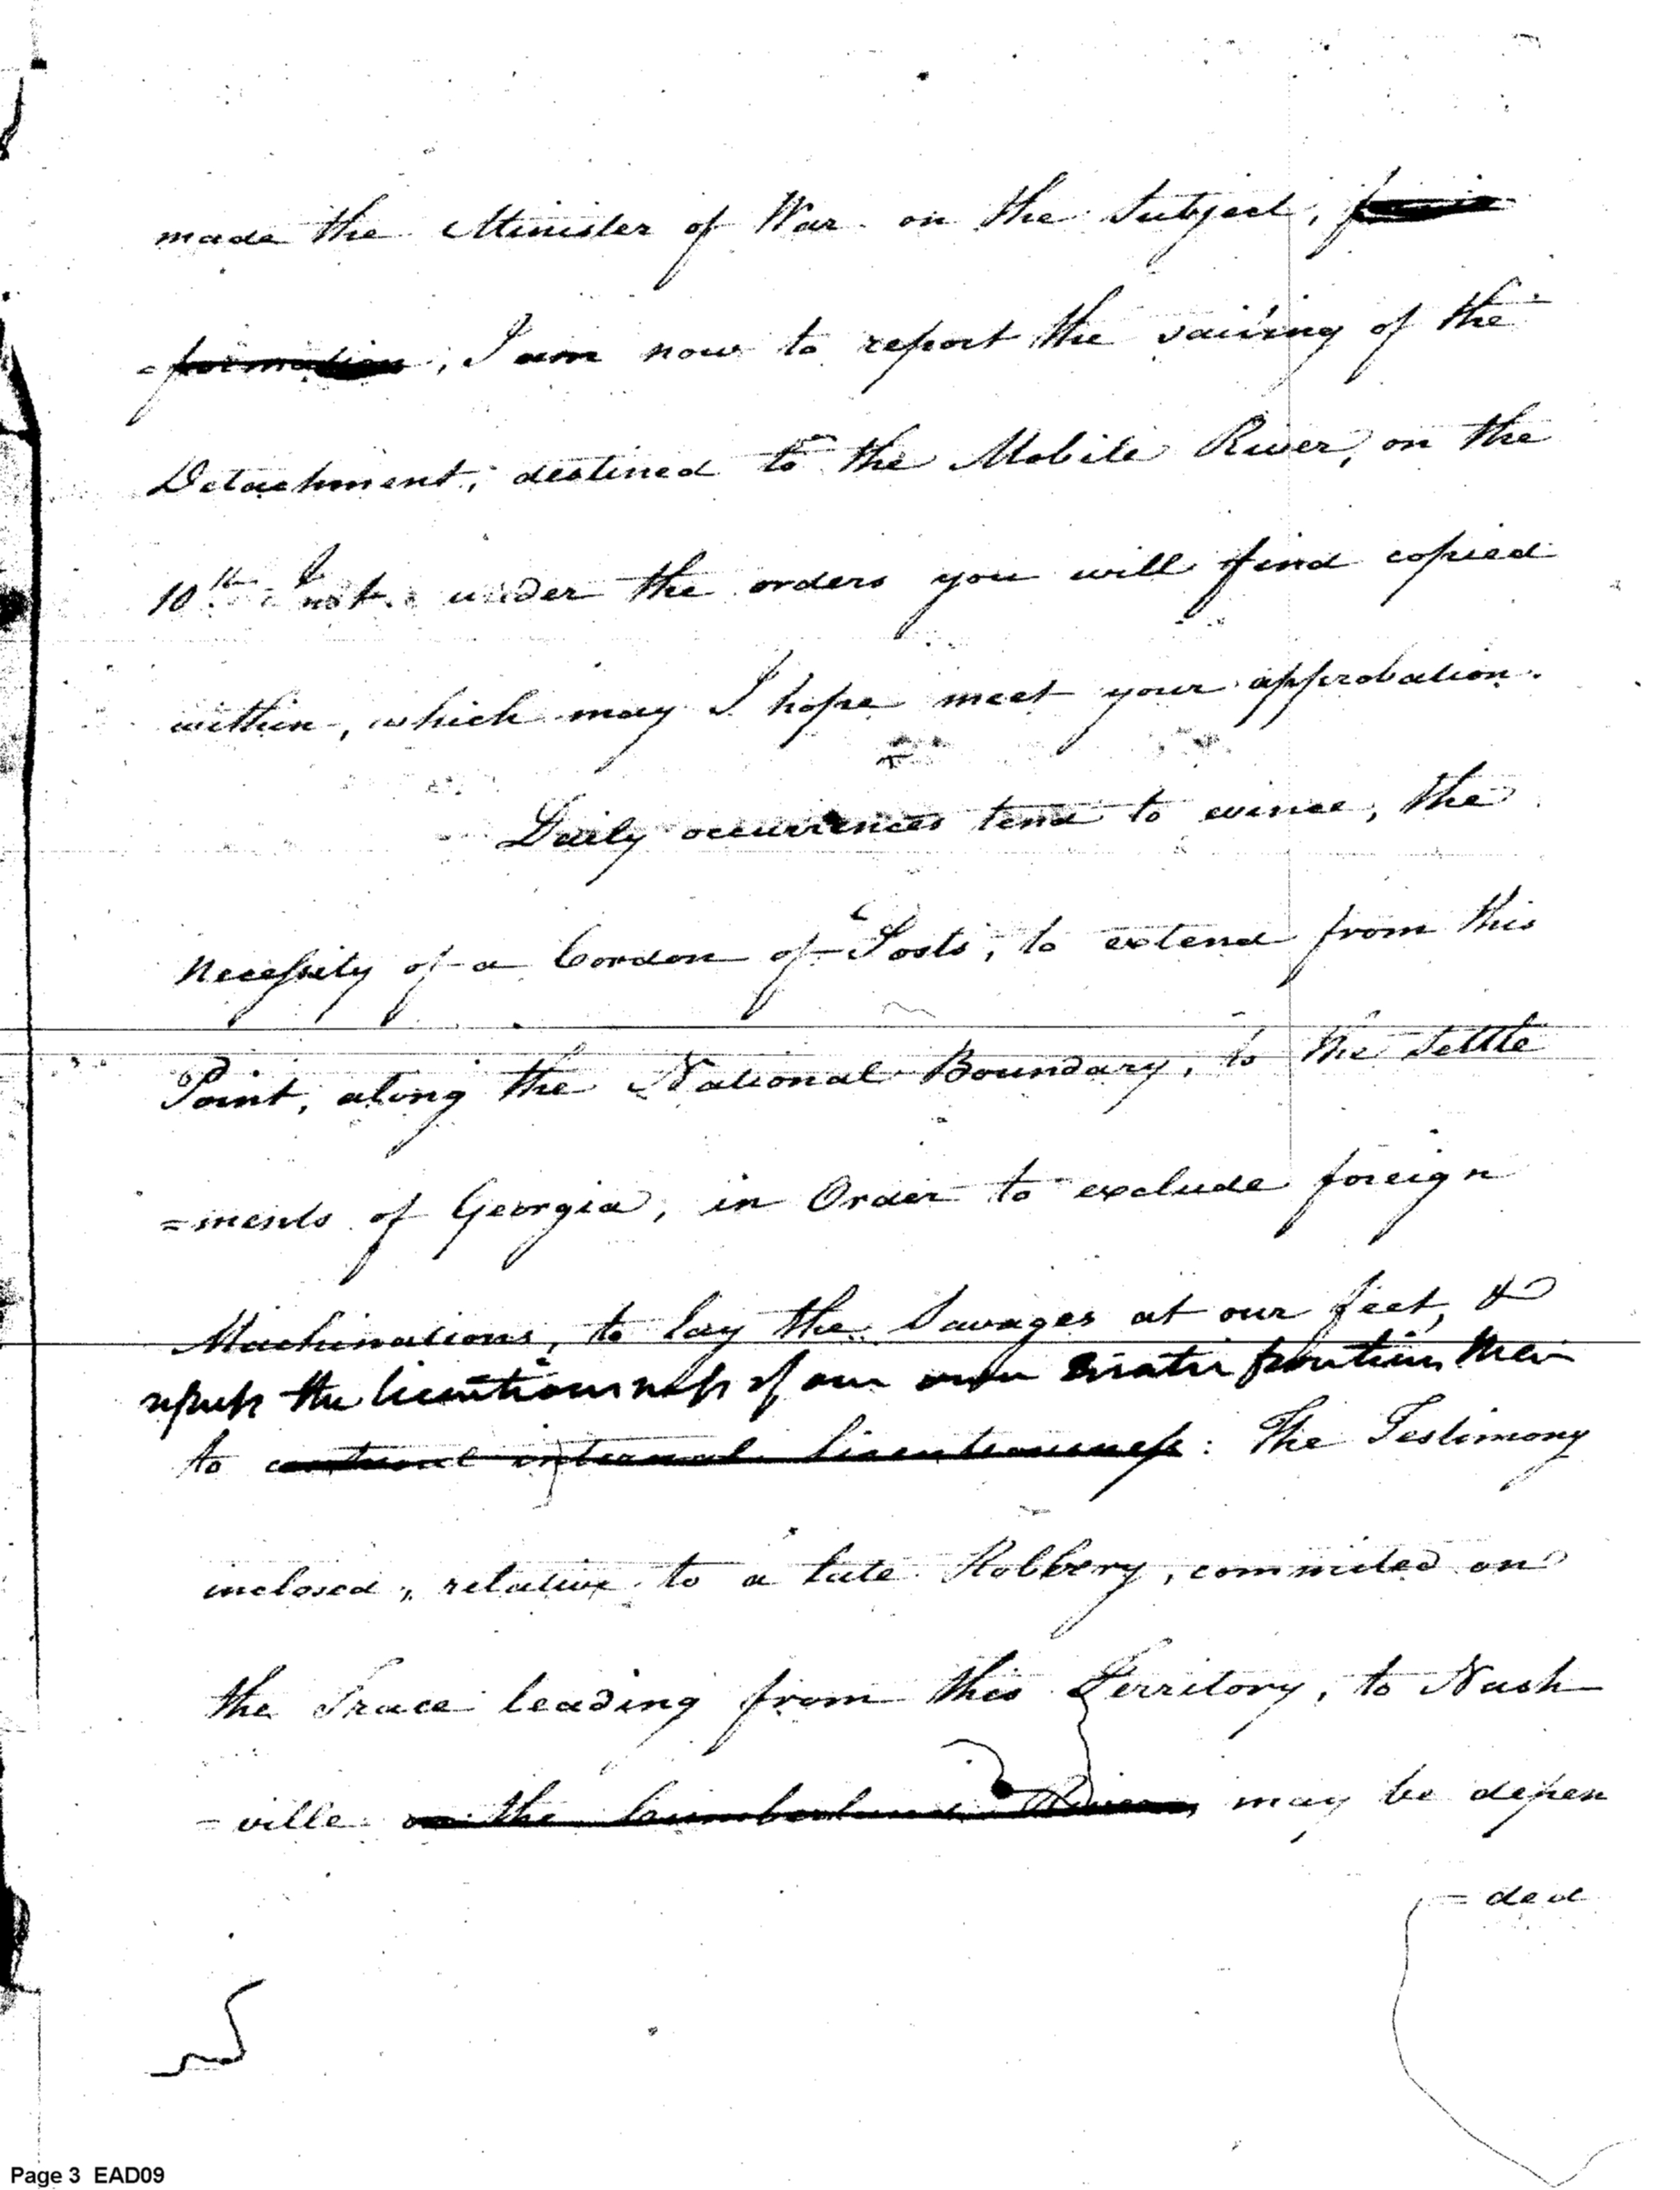 made the Minister of War on the Subject,
=formation, I am now to report the sailing of the
Detachment, destined to the Mobile River, on the
10th Inst. under the orders you will find copied
within, which may I hope meet your approbation.
Daily occurrences tend to evince, the
necessity of a Cordon of Posts, to extend from this
Point, along the National Boundary, to the Settle
=ments of Georgia, in Order to exclude foreign
Machinations, to lay the Savages at our feet, &
repress the licentiousness of our own erratic frontier Men
to controul internal licentiousness: The Testimony
inclosed, relative to a late Robbery, commited on
the Trace leading from this Territory, to Nash
=ville on the Cumberland River, may be depen
=ded
Page 3 EAD09